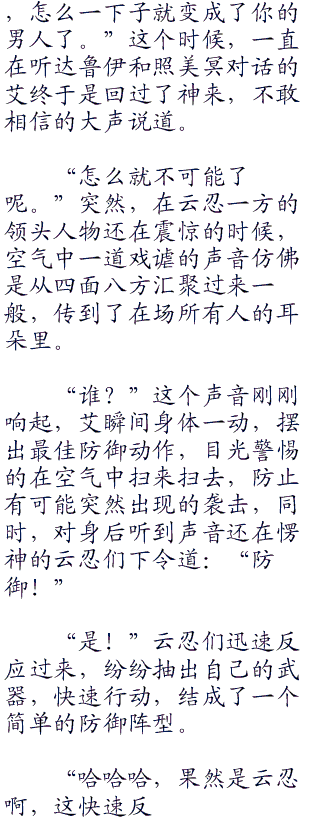 ，怎么一下子就变成了你的
男人了。”这个时候，一直
在听达鲁伊和照美冥对话的
艾终于是回过了神来，不敢
相信的大声说道。
“怎么就不可能了
呢。”突然，在云忍一方的
领头人物还在震惊的时候，
空气中一道戏谑的声音仿佛
是从四面八方汇聚过来一
般，传到了在场所有人的耳
朵里。
“谁？”这个声音刚刚
响起，艾瞬间身体一动，摆
出最佳防御动作，目光警惕
的在空气中扫来扫去，防止
有可能突然出现的袭击，同
时，对身后听到声音还在愣
神的云忍们下令道：“防
御！”
“是！”云忍们迅速反
应过来，纷纷抽出自己的武
器，快速行动，结成了一个
简单的防御阵型。
“哈哈哈，果然是云忍
啊，这快速反